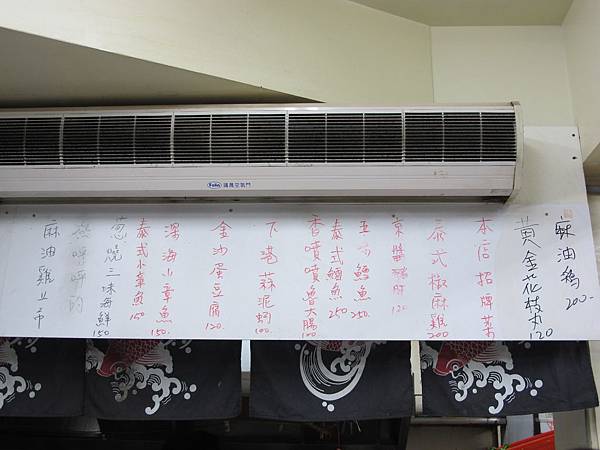 麻油鷄 200.
黃金花枝丸 120
本店招牌菜
泰式椒麻雞 200
京醬豬肝 120
鱸魚 250.
泰式鱸魚 250
香噴噴魯大腸 100
下港蒜泥蚵 100.
金沙蛋豆腐 120.
深海小章魚 150.
泰式小章魚 150
蔥燒三味海鮮 150
熱呼呼的
麻油雞上市
空氣門